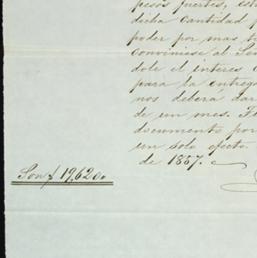 pesos fuertes, est
dicha cantidad p
poder por mas t
conviniese al Se
dole el interes
para la entreg
nos deberá dar
de un mes. F
documento por
un solo efecto.
de 1857.
Son $ 19,620..